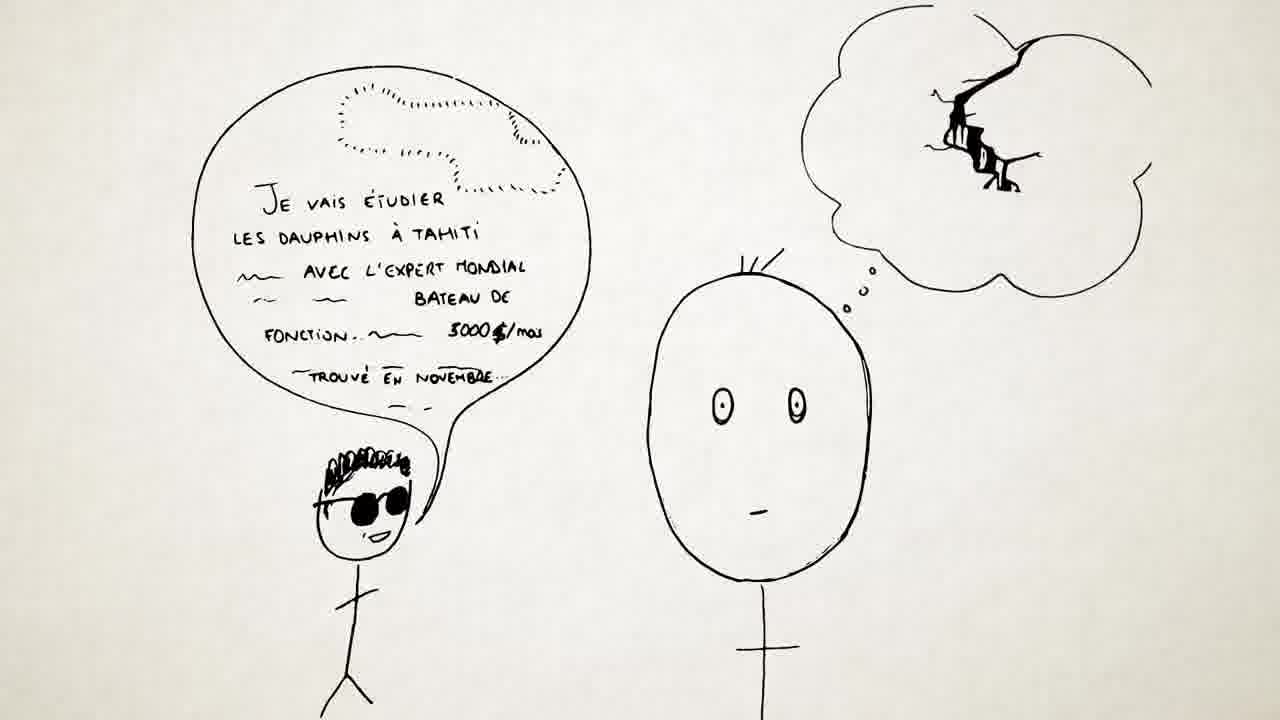 JE VAIS ÉTUDIER
LES DAUPHINS À TAHITI
AVEC L'EXPERT MONDIAL
BATEAU DE
FONCTION.. 5000 $/mois
TROUVÉ EN NOVEMBRE...